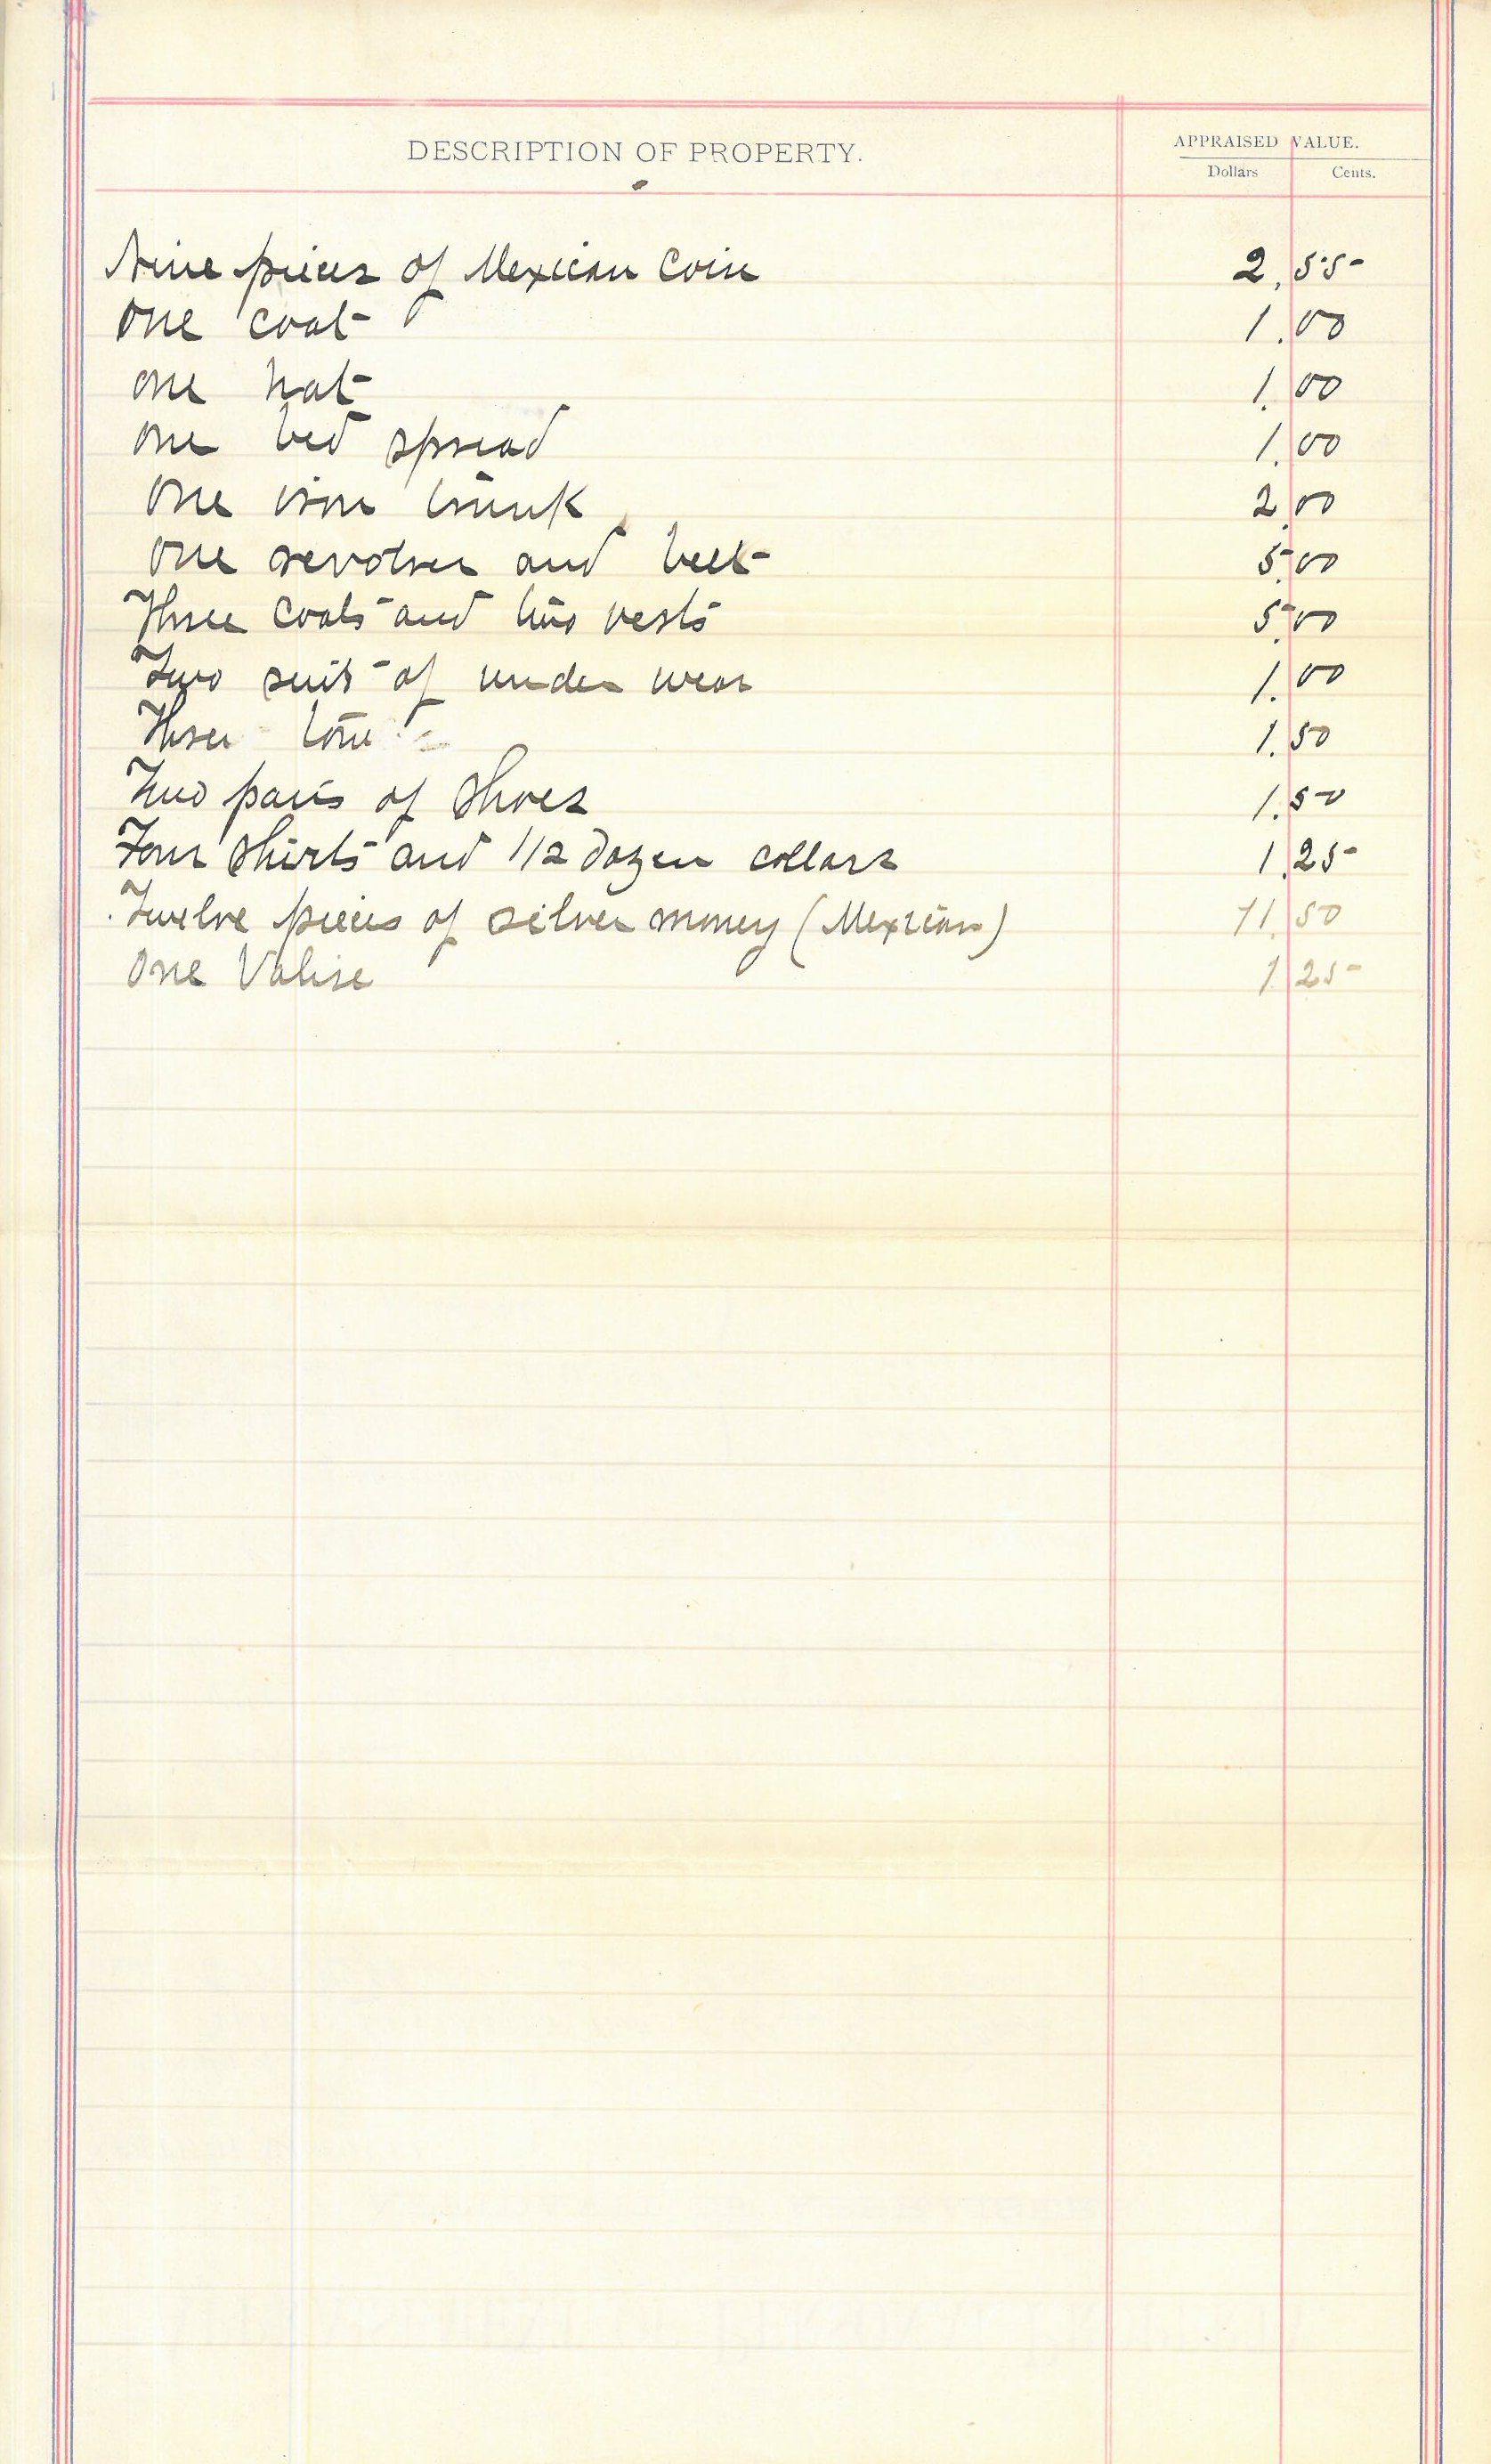 DESCRIPTION OF PROPERTY. APPRAISED VALUE.
Dollars Cents.
Nine pieces of Mexican Coin 2.55
One coat 1.00
One hat 1.00
One bed spread 1.00
One iron trunk 2.00
One revolver and belt 5.00
Three Coats and two vests 5.00
Two suits of under wear 1.00
Three 1.50
Two pairs of Shoes 1.50
Four Shirts and 1/2 dozen collars 1.25
Twelve pieces of silver money (Mexican) 11.50
One Valise 1.25